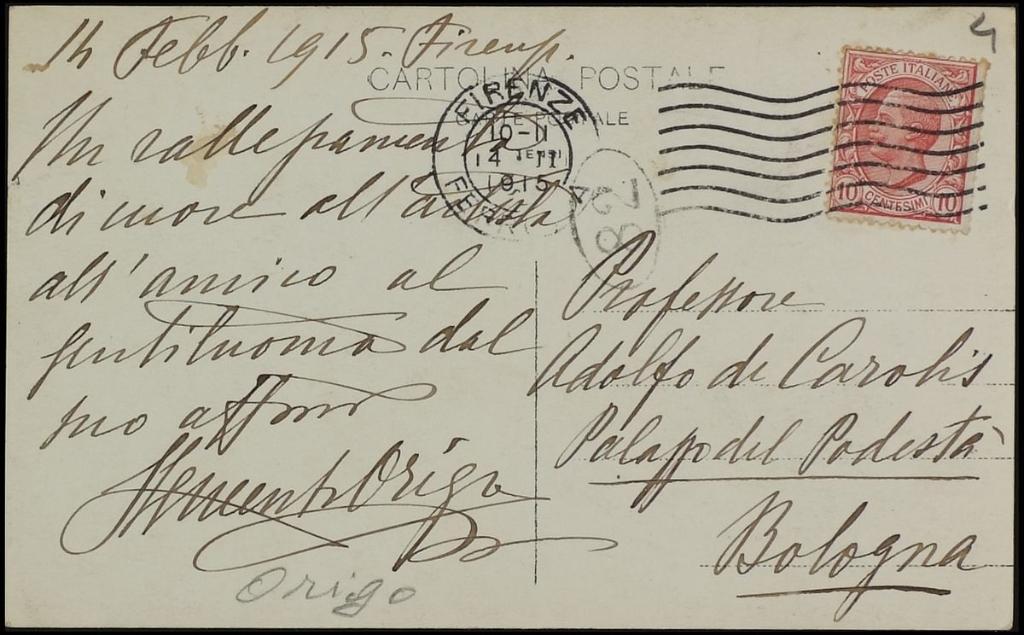 14 Febb. 1915. Firenze.
CARTOLINA POSTALE
Un rallegramento
di cuore all'artista
all'amico al
gentiluomo dal
suo affmo
Clemente Origo
Origo
FIRENZE
10-11
14 II
1915
FERROVIA
28
POSTE ITALIANE
10 CENTESIMI 10
Professore
Adolfo de Carolis
Palazzo del Podestà
Bologna